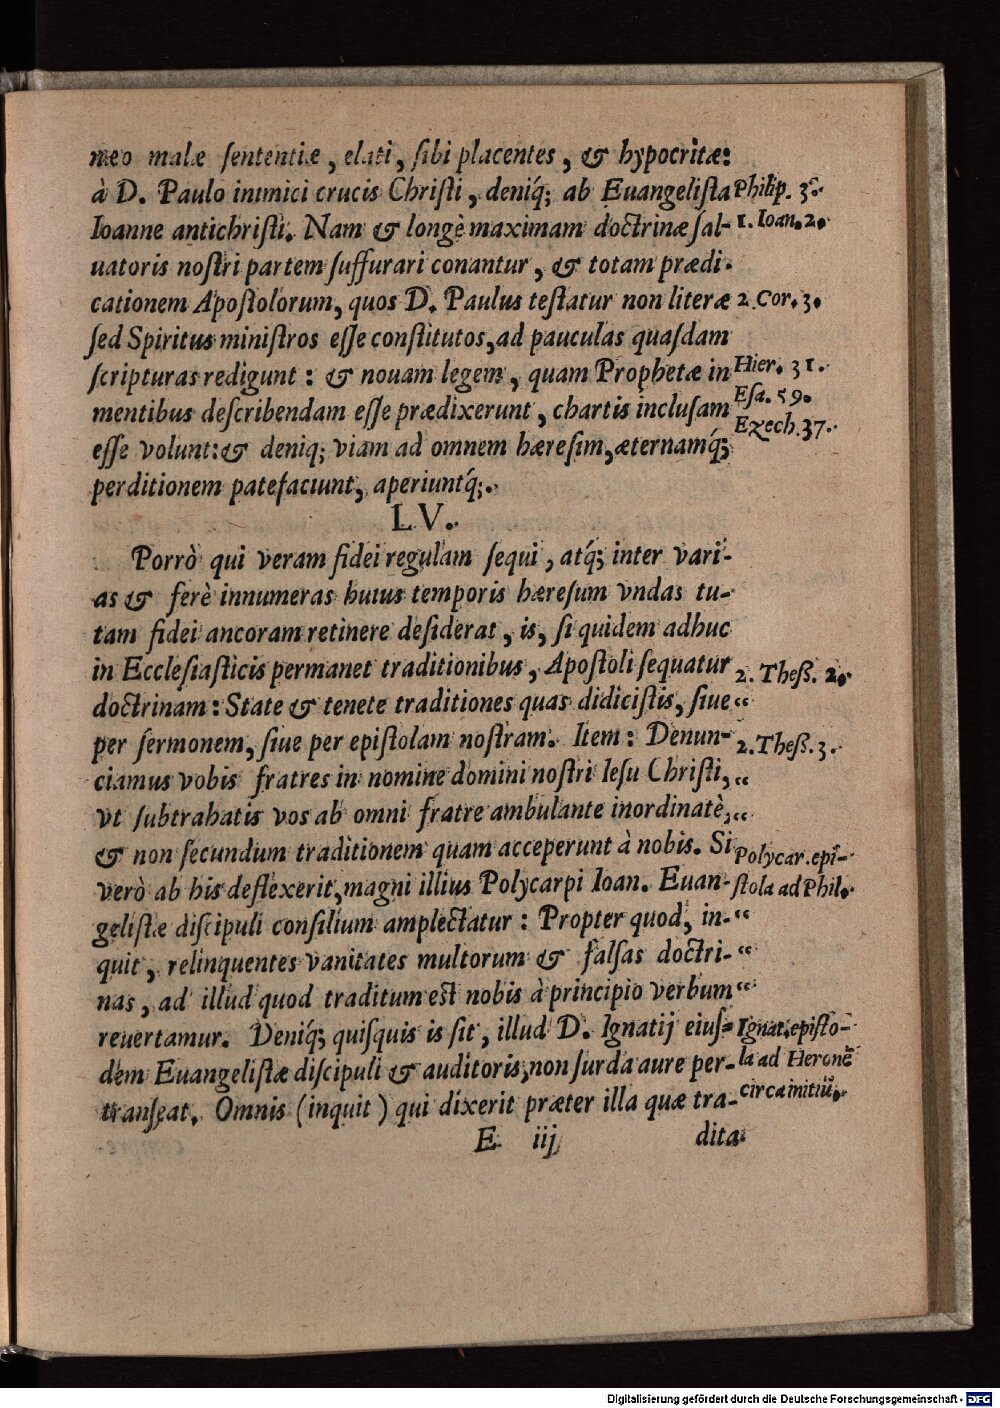 neo malæ ſententiæ, elati, ſibi placentes, & hypocritæ:
à D. Paulo inimici crucis Chriſti, deniq́; ab Euangeliſta Philip. 3.
Ioanne antichriſti. Nam & longè maximam doctrinæ ſal- 1. Ioan. 2.
uatoris noſtri partem ſuffurari conantur, & totam prædi-
cationem Apoſtolorum, quos D. Paulus teſtatur non literæ 2. Cor. 3.
ſed Spiritus miniſtros eſſe conſtitutos, ad pauculas quaſdam
ſcripturas redigunt: & nouam legem, quam Prophetæ in Hier. 31.
mentibus deſcribendam eſſe prædixerunt, chartis incluſam Eſa. 59.
eſſe volunt: & deniq; viam ad omnem hæreſim, æternamq́; Ezech. 37.
perditionem patefaciunt, aperiuntq́;.
LV.
Porrò qui veram fidei regulam ſequi, atq́; inter vari-
as & ferè innumeras huius temporis hæreſum vndas tu-
tam fidei ancoram retinere deſiderat, is, ſi quidem adhuc
in Eccleſiaſticis permanet traditionibus, Apoſtoli ſequatur 2. Theſſ. 2.
doctrinam: State & tenete traditiones quas didiciſtis, ſiue “
per ſermonem, ſiue per epiſtolam noſtram. Item: Denun- 2. Theſſ. 3.
ciamus vobis fratres in nomine domini noſtri Ieſu Chriſti, “
vt ſubtrahatis vos ab omni fratre ambulante inordinatè, “
& non ſecundum traditionem quam acceperunt à nobis. Si Polycar. epi-
verò ab his deflexerit, magni illius Polycarpi Ioan. Euan- ſtola ad Phil.
geliſtæ diſcipuli conſilium amplectatur: Propter quod, in- “
quit, relinquentes vanitates multorum & falſas doctri- “
nas, ad illud quod traditum eſt nobis à principio verbum “
reuertamur. Deniq́; quiſquis is ſit, illud D. Ignatij eiuſ- Ignat. epiſto-
dem Euangeliſtæ diſcipuli & auditoris, non ſurda aure per- la ad Heronē
tranſeat. Omnis (inquit) qui dixerit præter illa quæ tra- circa initiū.
E iij dita
Digitalisierung gefördert durch die Deutsche Forschungsgemeinschaft - DFG